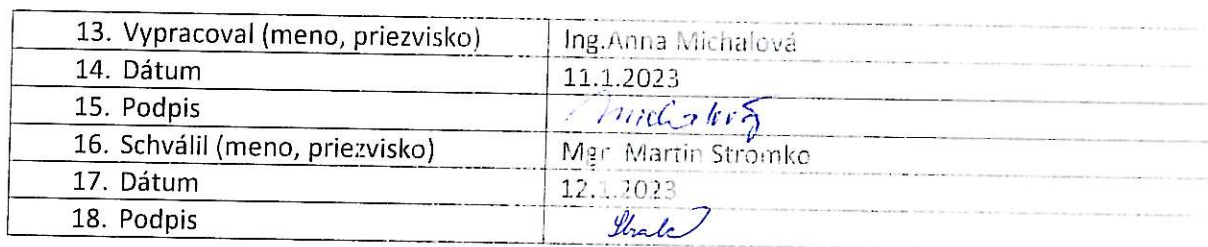 13. Vypracoval (meno, priezvisko) Ing.Anna Michalová
14. Dátum 11.1.2023
15. Podpis Michalová
16. Schválil (meno, priezvisko) Mgr. Martin Stromko
17. Dátum 12.1.2023
18. Podpis